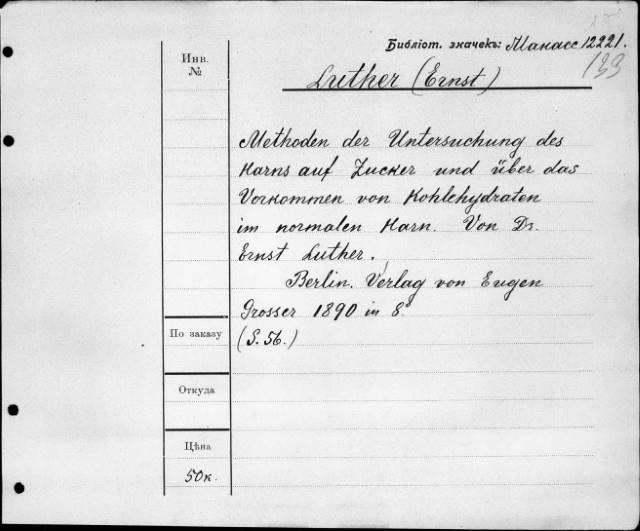 Библіот. значекъ: Манасс 12221.
133
Инв.
№
Luther (Ernst)
Methoden der Untersuchung des
Harns auf Zucker und über das
Vorkommen von Kohlehydraten
im normalen Harn. Von Dr.
Ernst Luther.
Berlin. Verlag von Eugen
Grosser 1890 in 8°
(S. 56.)
По заказу
Откуда
Цѣна
50 к.